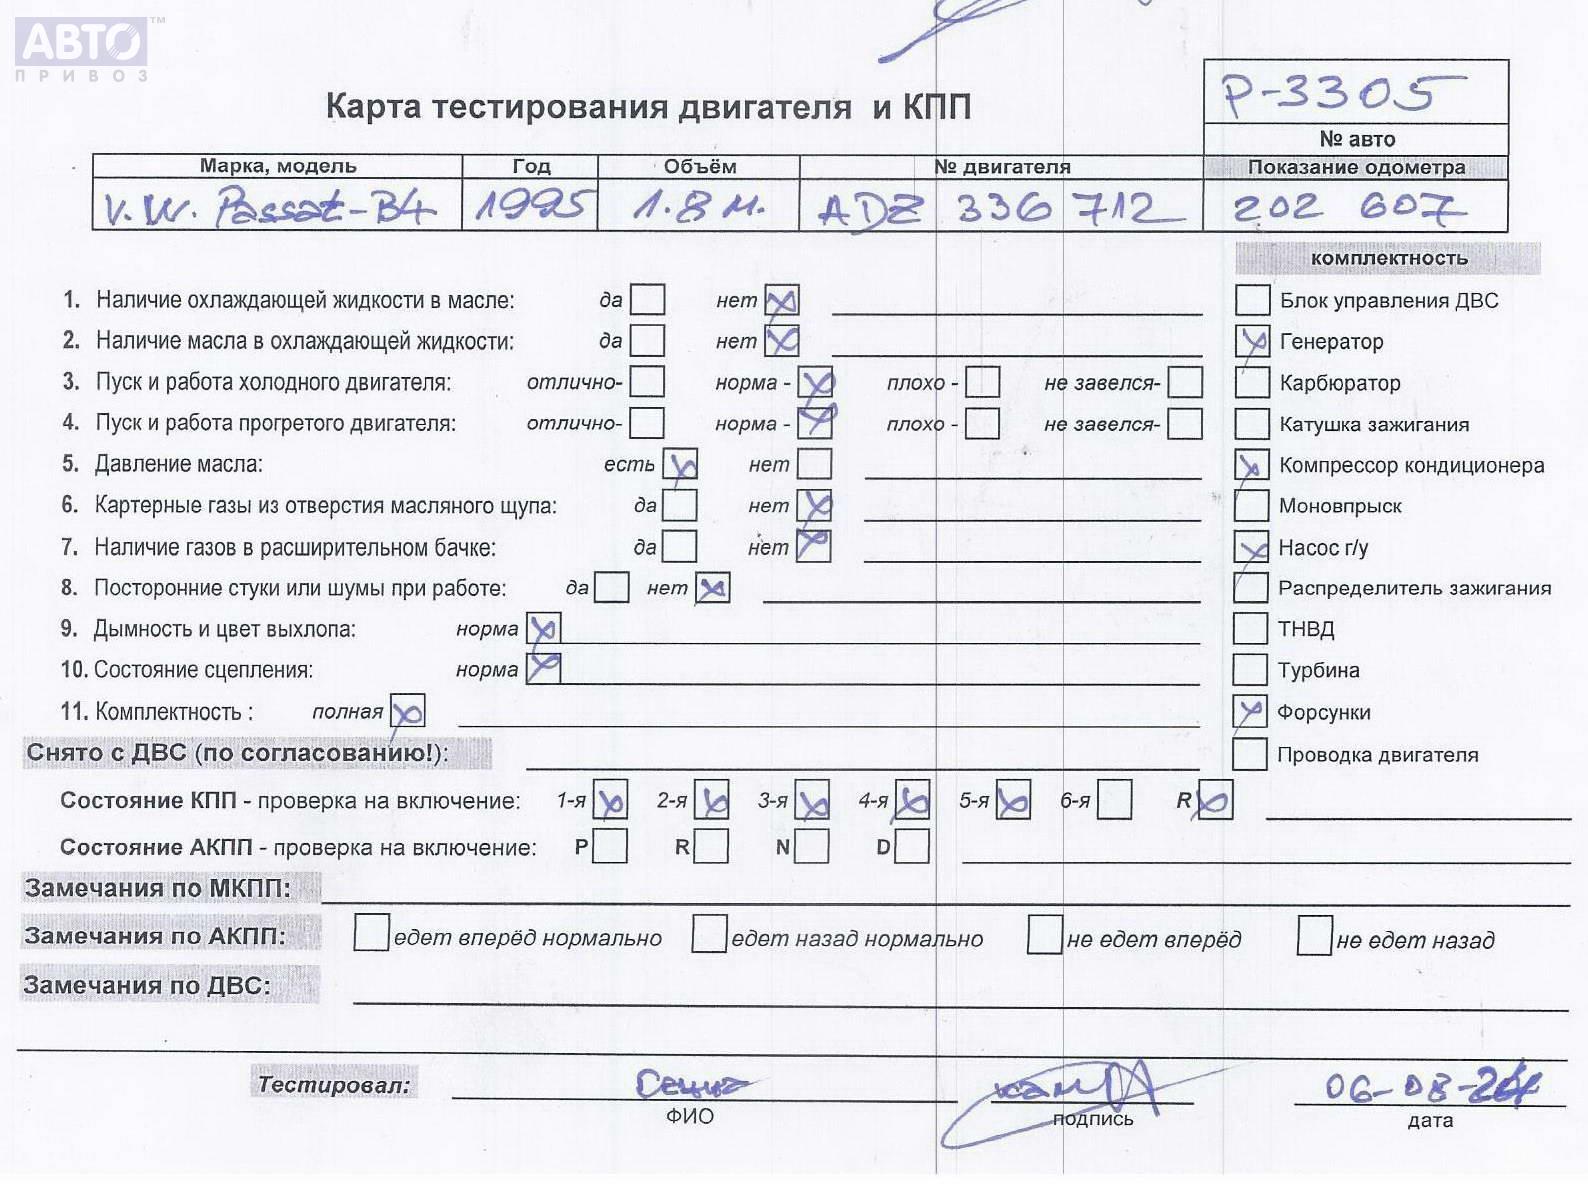 АВТО™
ПРИВОЗ
Р-3305
Карта тестирования двигателя и КПП
№ авто
Марка, модель Год Объём № двигателя Показание одометра
V.W. Passat-B4 1995 1.8 м. ADZ 336 712 202 607
комплектность
1. Наличие охлаждающей жидкости в масле: да нет Блок управления ДВС
2. Наличие масла в охлаждающей жидкости: да нет Генератор
3. Пуск и работа холодного двигателя: отлично- норма - плохо - не завелся- Карбюратор
4. Пуск и работа прогретого двигателя: отлично- норма - плохо - не завелся- Катушка зажигания
5. Давление масла: есть нет Компрессор кондиционера
6. Картерные газы из отверстия масляного щупа: да нет Моновпрыск
7. Наличие газов в расширительном бачке: да нет Насос г/у
8. Посторонние стуки или шумы при работе: да нет Распределитель зажигания
9. Дымность и цвет выхлопа: норма ТНВД
10. Состояние сцепления: норма Турбина
11. Комплектность : полная Форсунки
Снято с ДВС (по согласованию!): Проводка двигателя
Состояние КПП - проверка на включение: 1-я 2-я 3-я 4-я 5-я 6-я R
Состояние АКПП - проверка на включение: P R N D
Замечания по МКПП:
Замечания по АКПП: едет вперёд нормально едет назад нормально не едет вперёд не едет назад
Замечания по ДВС:
Тестировал: 06-08-
ФИО подпись дата